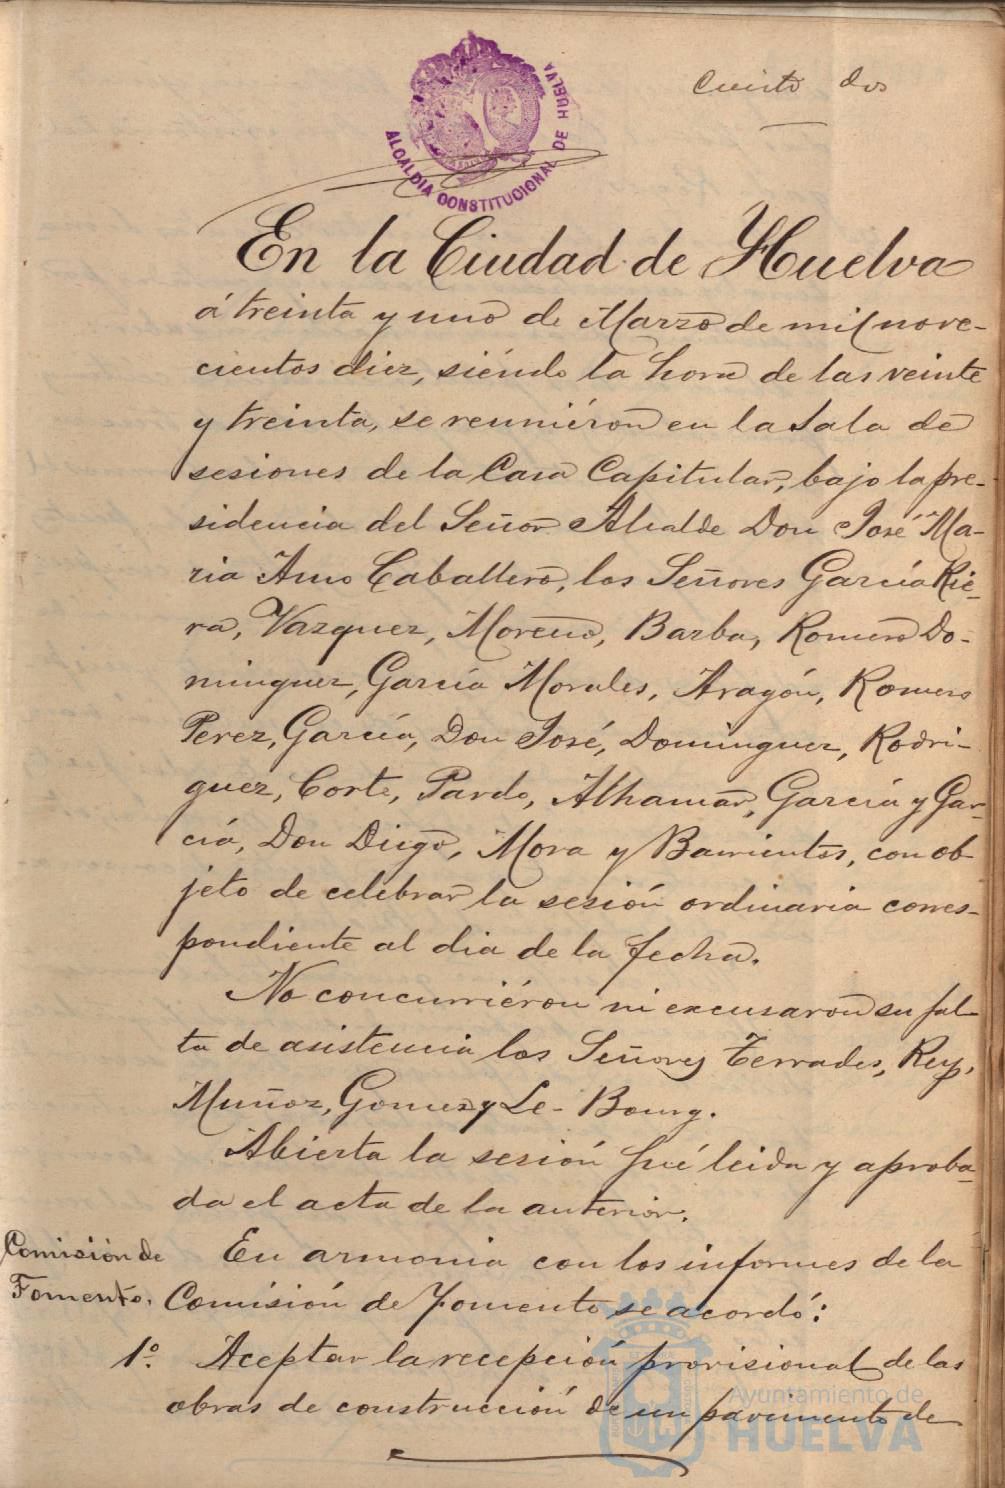 Ciento dos
ALCALDIA CONSTITUCIONAL DE HUELVA
En la Ciudad de Huelva
á treinta y uno de Marzo de mil nove-
cientos diez, siéndo la hora de las veinte
y treinta, se reuniéron en la Sala de
sesiones de la Casa Capitular, bajo la pre-
sidencia del Señor Alcalde Don José Ma-
ria Amo Caballero, los Señores García Rie-
ra, Vazquez, Moreno, Barba, Romero Do-
minguez, García Morales, Aragón, Romero
Perez, García, Don José, Dominguez, Rodri-
guez, Corte, Pardo, Alhamar, García y Gar-
cía, Don Diego, Mora y Barrientos, con ob-
jeto de celebrar la sesión ordinaria corres-
pondiente al dia de la fecha.
No concurriéron ni excusaron su fal-
ta de asistencia los Señores Terrades, Rey,
Muñoz, Gomez y Le-Bourg.
Abierta la sesión fué leida y aproba-
da el acta de la anterior.
Comisión de
Fomento.
En armonia con los informes de la
Comisión de Fomento se acordó:
1º. Aceptar la recepción provisional de las
obras de construcción de un pavimento de
Ayuntamiento de
HUELVA